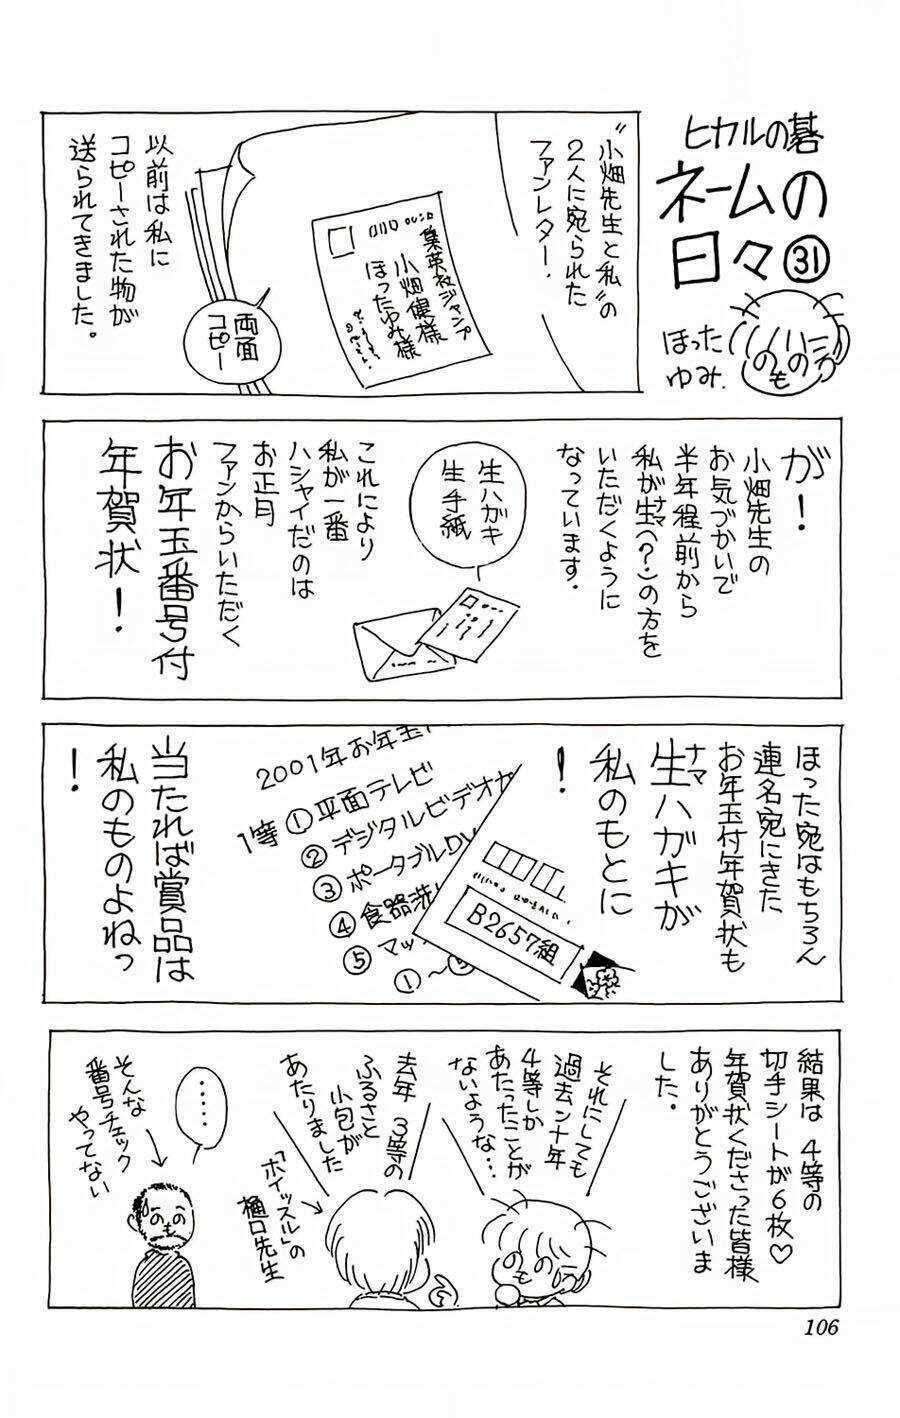 ヒカルの碁
ネームの
日々㉛
ほった
ゆみ
“小畑先生と私”の
2人に宛られた
ファンレター.
集英社ジャンプ
小畑健様
ほったゆみ様
両面
コピー
以前は私に
コピーされた物が
送られてきました。
が!
小畑先生の
お気づかいで
半年程前から
私が生(?)の方を
ナマ
いただくように
なっています.
生ハガキ
生手紙
これにより
私が一番
ハシャイだのは
お正月
ファンからいただく
お年玉番号付
年賀状!
ほった宛はもちろん
連名宛にきた
お年玉付年賀状も
生ハガキが
ナマ
私のもとに
!
2001年お年玉
1等①平面テレビ
②デジタルビデオカ
③ポータブルDV
④食器洗
⑤マッ
①〜⑤
B2657組
当たれば賞品は
私のものよねっ
!
結果は 4等の
切手シートが6枚♡
年賀状くださった皆様
ありがとうございま
した.
それにしても
過去ン十年
4等しか
あたったことが
ないような…
去年 3等の
ふるさと
小包が
あたりました
「ホイッスル」の
樋口先生
……
そんな
番号チェック
やってない
106